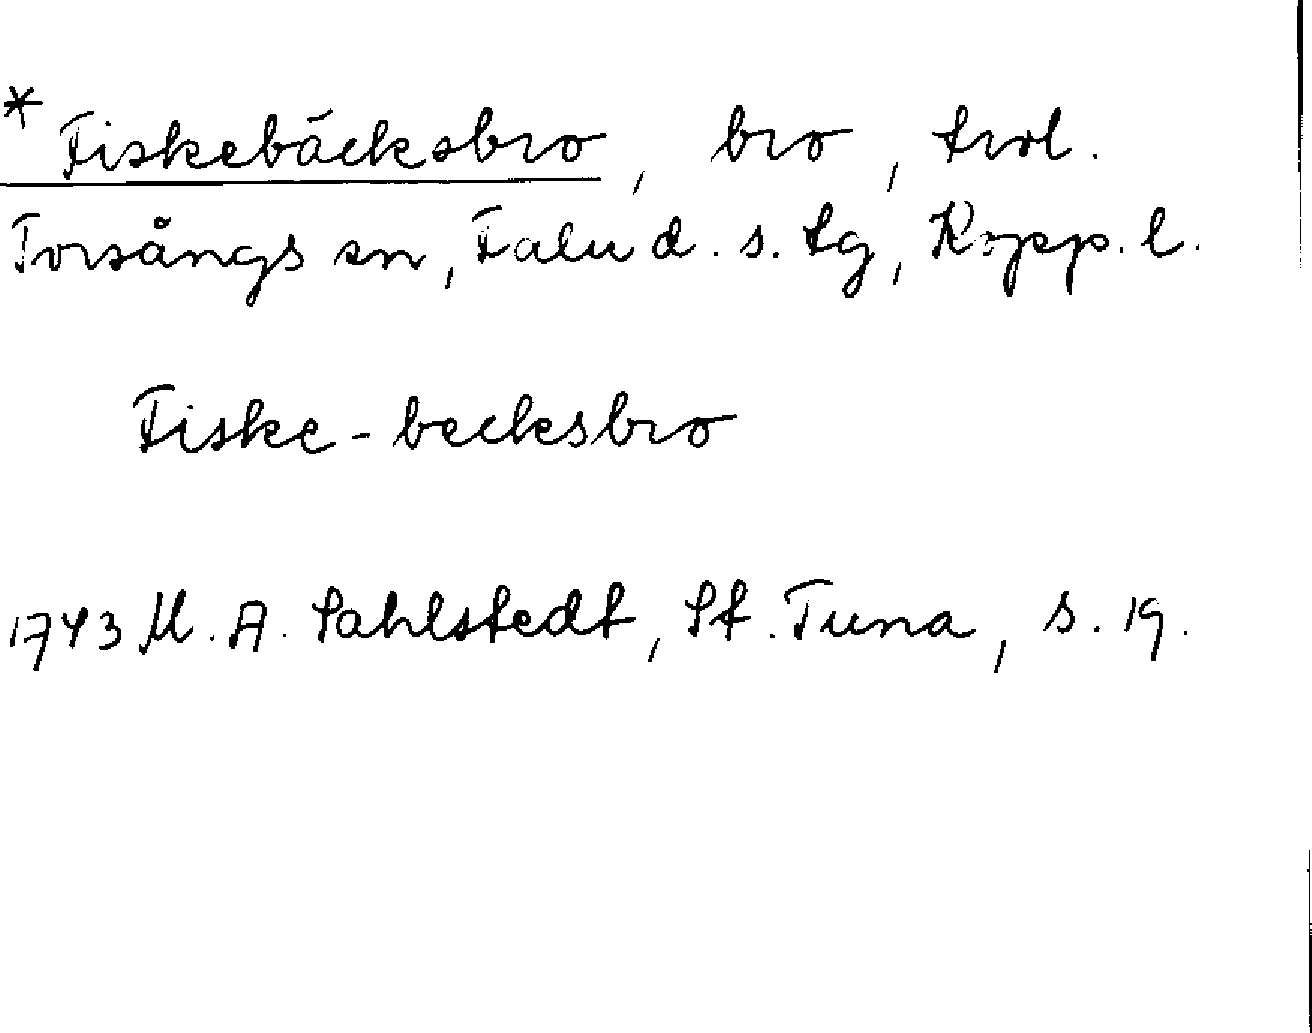 * Fiskebäcksbro, bro, trol.
Torsångs sn, Falu d. s. tg, Kopp. l.
Fiske-becksbro
1743 M. A. Sahlstedt, St. Tuna, s. 19.